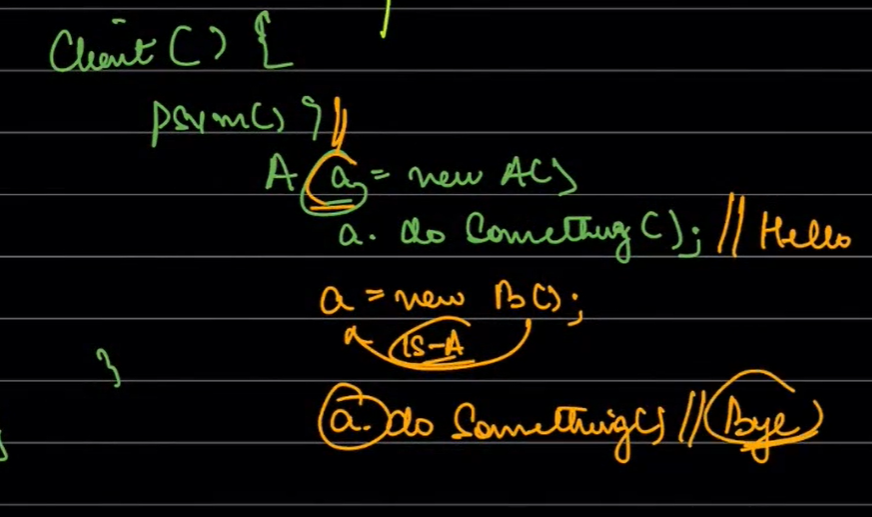 Client() {
psvm() { //
A a = new A()
a. do Something(); // Hello
a = new B();
IS-A
}
a. do Something() // Bye